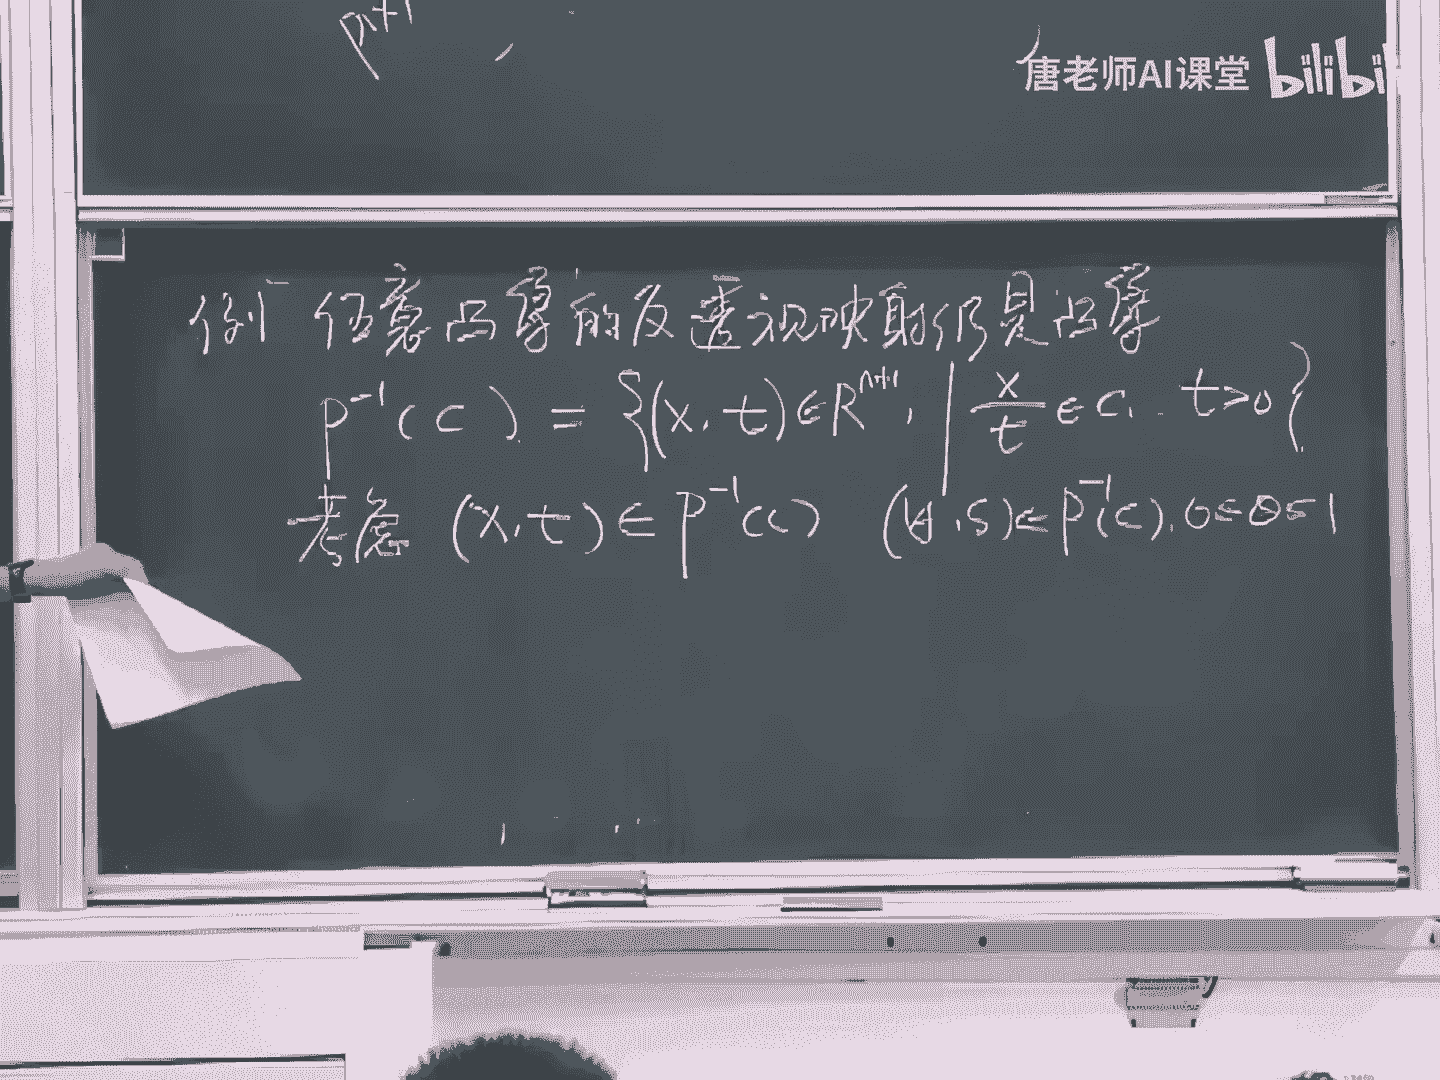 pn+1
唐老师AI课堂 bilibili
例 任意凸集的反透视映射仍是凸集
P⁻¹(C) = {(x, t)∈Rⁿ⁺¹, | x/t ∈ C, t>0}
考虑 (x, t) ∈ P⁻¹(C) (y, s)∈P⁻¹(C), 0≤θ≤1